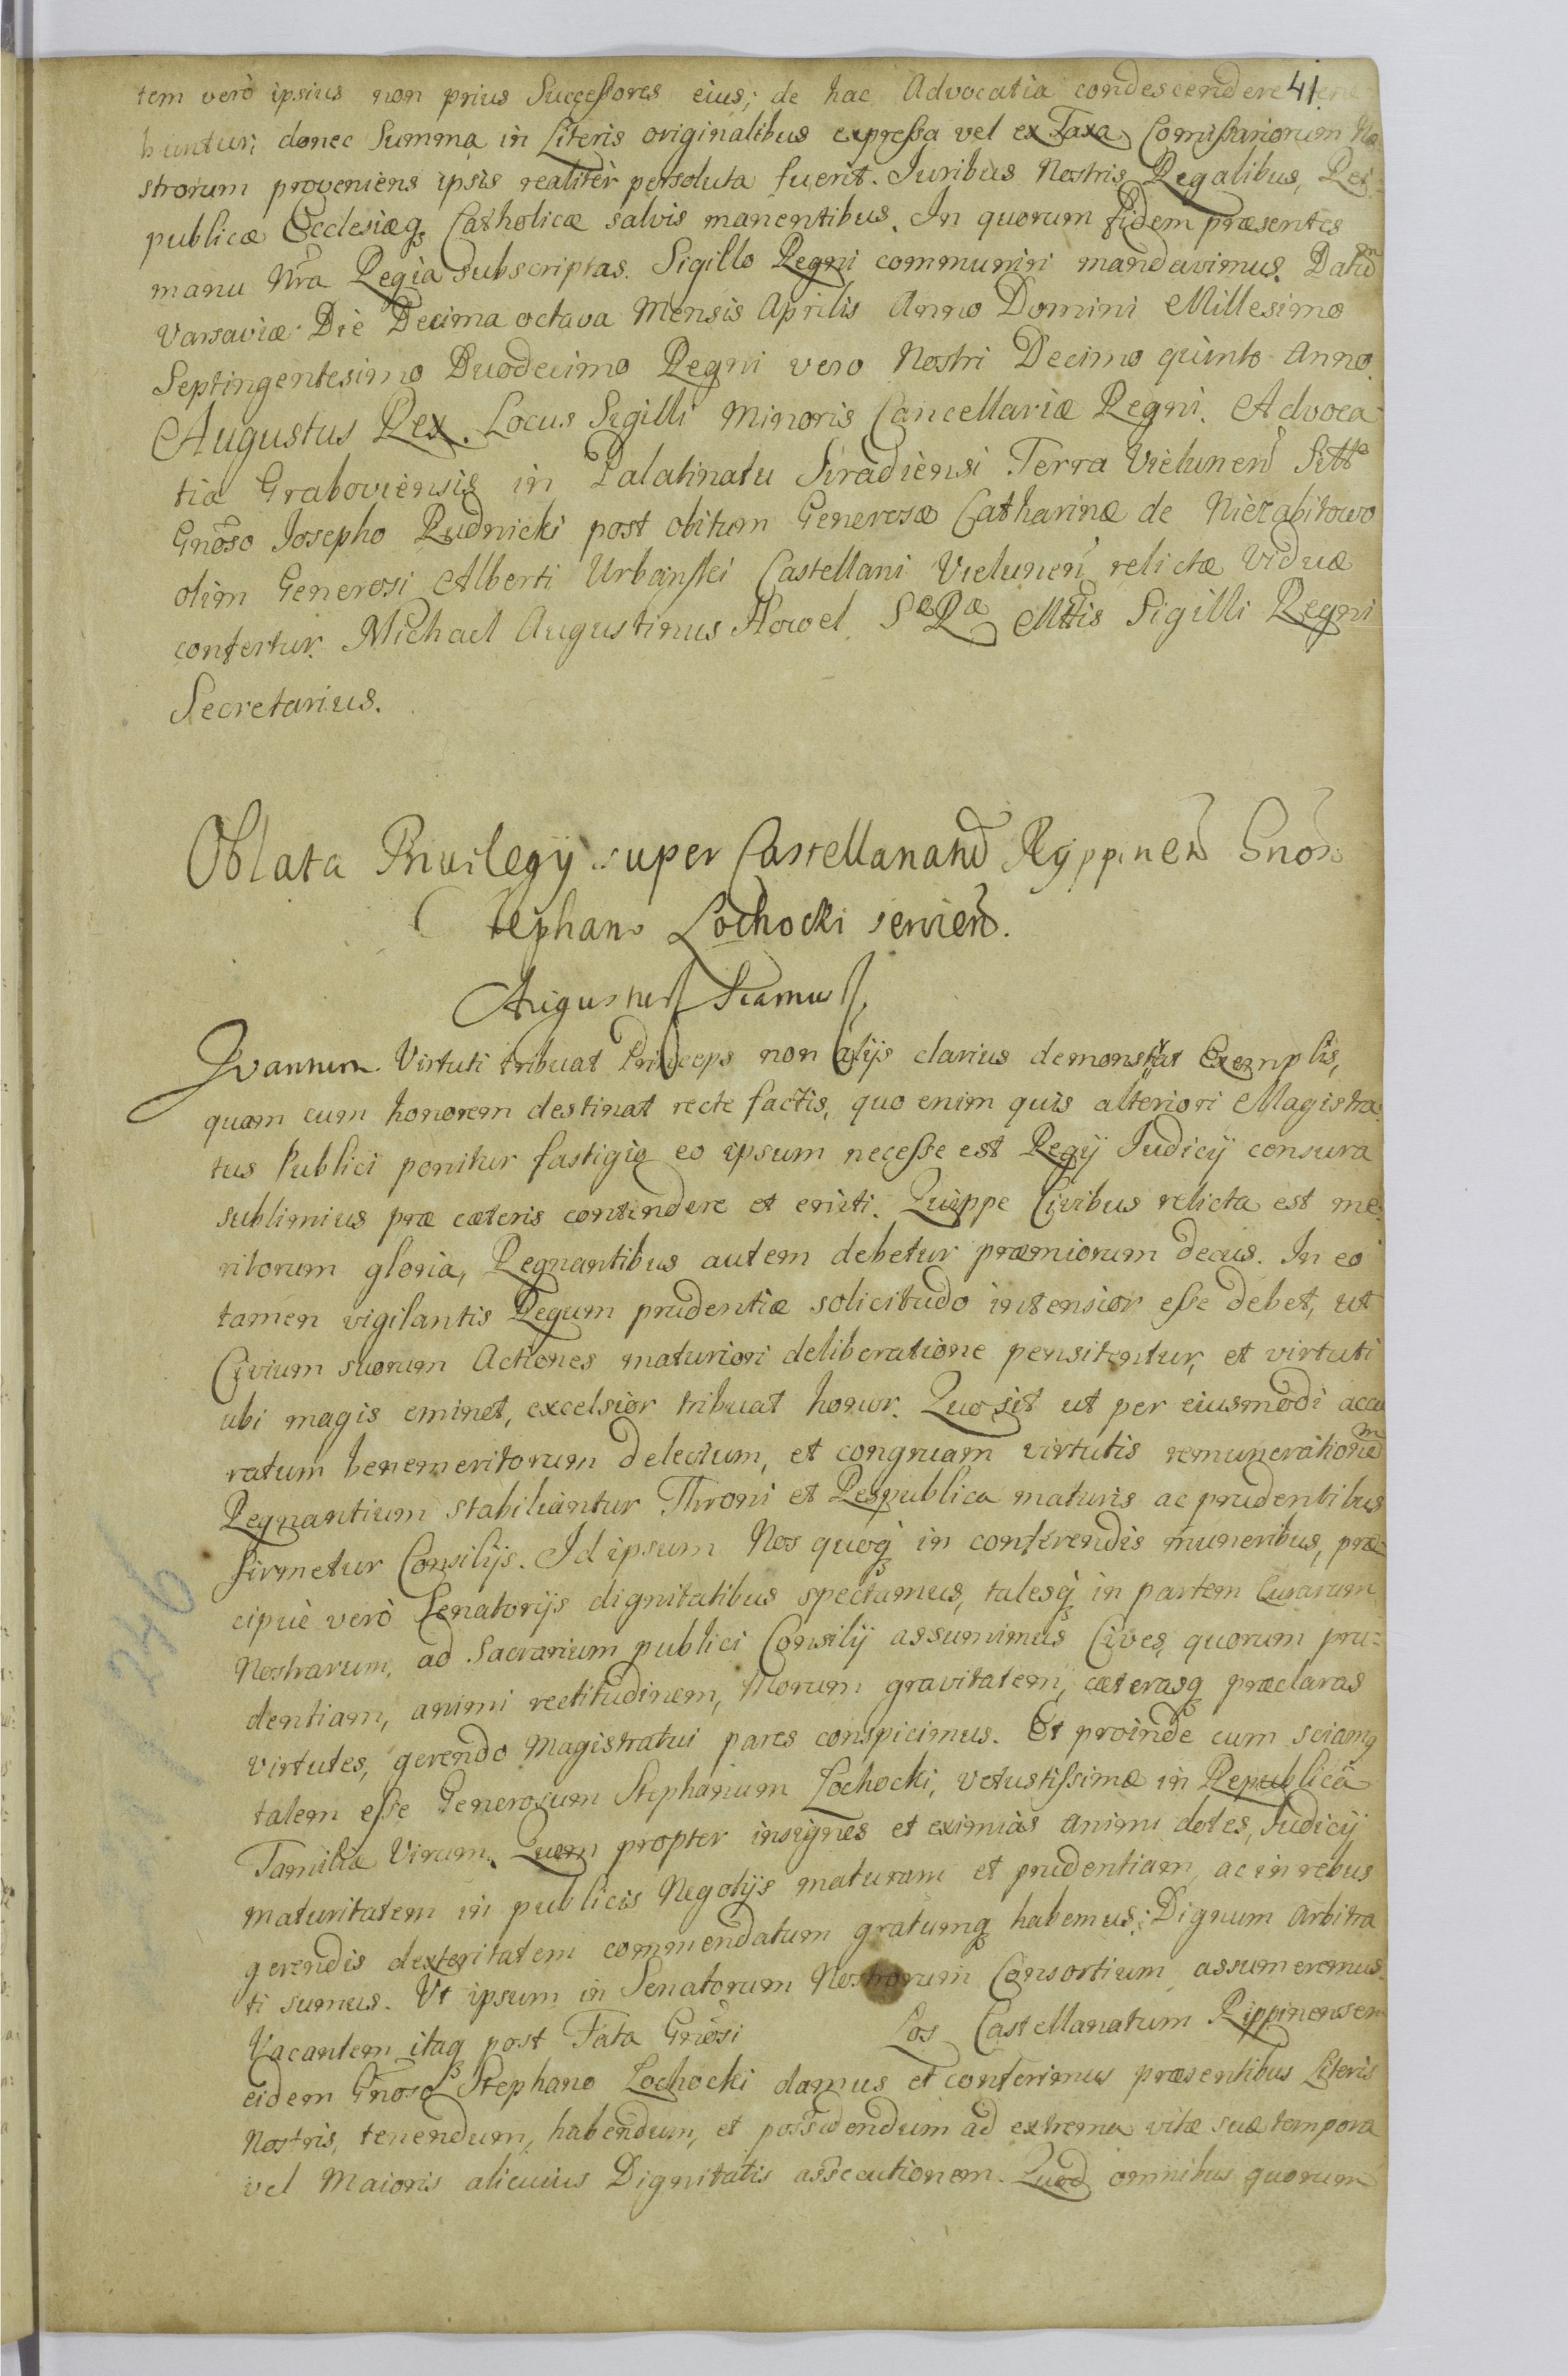 tem verò ipsius non prius Successores eius; de hac Advocatia condescendere 41
buntur; donec Summa in Literis originalibus expressa vel ex Taxa Comissariorum No
strorum proveniens ipsis realitèr persoluta fuerit. Iuribus Nostris Regalibus, Rei-
publicæ Ecclesiæq; Catholicæ salvis manentibus. In quorum fidem præsentes
manu Nrã Regia subscriptas. Sigillo Regni communiri mandavimus. Datũm
Varsaviæ Die Decima octava Mensis Aprilis Anno Domini Millesimo
Septingentesimo Duodecimo Regni vero Nostri Decimo quinto Anno.
Augustus Rex. Locus Sigilli Minoris Cancellariæ Regni. Advoca-
tia Graboviensis in Palatinatu Siradiensi Terra Vielunen̄ Sitta
Gnõso Josepho Rudnicki post obitum Generosæ Catharinæ de Niezabitowo
olim Generosi Alberti Urbański Castellani Vielunen̄ relictæ Viduæ
confertur. Michael Augustinus Howel Sæ Ræ Mttis Sigilli Regni
Secretarius.
Oblata Privilegÿ super Castellanatũ Ryppinen̄ Gnõso
Stephano Lochocki servien̄.
Augustus Sciamus
Quantum Virtuti tribuat Princeps non alijs clarius demonstrat Exemplis,
quam cum honorem destinat recte factis, quo enim quis alteriori Magistra-
tus Publici ponitur fastigio eo ipsum necesse est Regÿ Iudicÿ censura
sublimius præ cæteris contendere et eniti. Quippe Civibus relicta est me-
ritorum gloria, Regnantibus autem debetur præmiorum decus. In eo
tamen vigilantis Regum prudentiæ solicitudo intensior esse debet, ut
Civium suorum Actiones maturiori deliberatione pensitentur, et virtuti
ubi magis eminet, excelsior tribuat honor. Quo sit ut per eiusmodi accu
ratum benemeritorum delectum, et congruam virtutis remunerationem
Regnantium stabiliantur Throni et Respublica maturis ac prudentibus
firmetur Consilijs. Id ipsum Nos quoq; in conferendis muneribus, præ-
cipuè verò Senatorijs dignitatibus spectamus, talesq; in partem Curarum
Nostrarum, ad Sacrarium publici Consilÿ assumimus Cives, quorum pru-
dentiam, animi rectitudinem, Morum gravitatem, cæterasq; præclaras
virtutes, gerendo Magistratui pares conspicimus. Et proinde cum sciamq
talem esse Generosum Stephanum Lochocki, vetustissimæ in Republica
Familiæ Virum. Quem propter insignes et eximias animi dotes, Iudicÿ
maturitatem in publicis Negotijs maturam et prudentiam, ac in rebus
gerendis dexteritatem commendatum gratumq; habemus; Dignum arbitra
ti sumus. Vt ipsum in Senatorum Nostrorum Consortium assumeremus.
Vacantem itaq; post Fata Gnõsi Los Castellanatum Rippinensem
eidem Gnõso Stephano Lochocki damus et conferimus præsentibus Literis
Nostris, tenendum, habendum, et possidendum ad extrema vitæ suæ tempora
vel Maioris alicuius Dignitatis assecutionem. Quod omnibus quorum